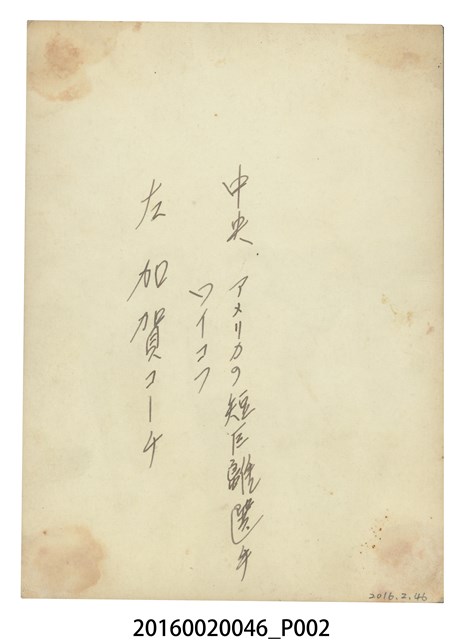 中央 アメリカの短巨離選手
ワイコフ
左 加賀コーチ
2016.2.46
20160020046_P002